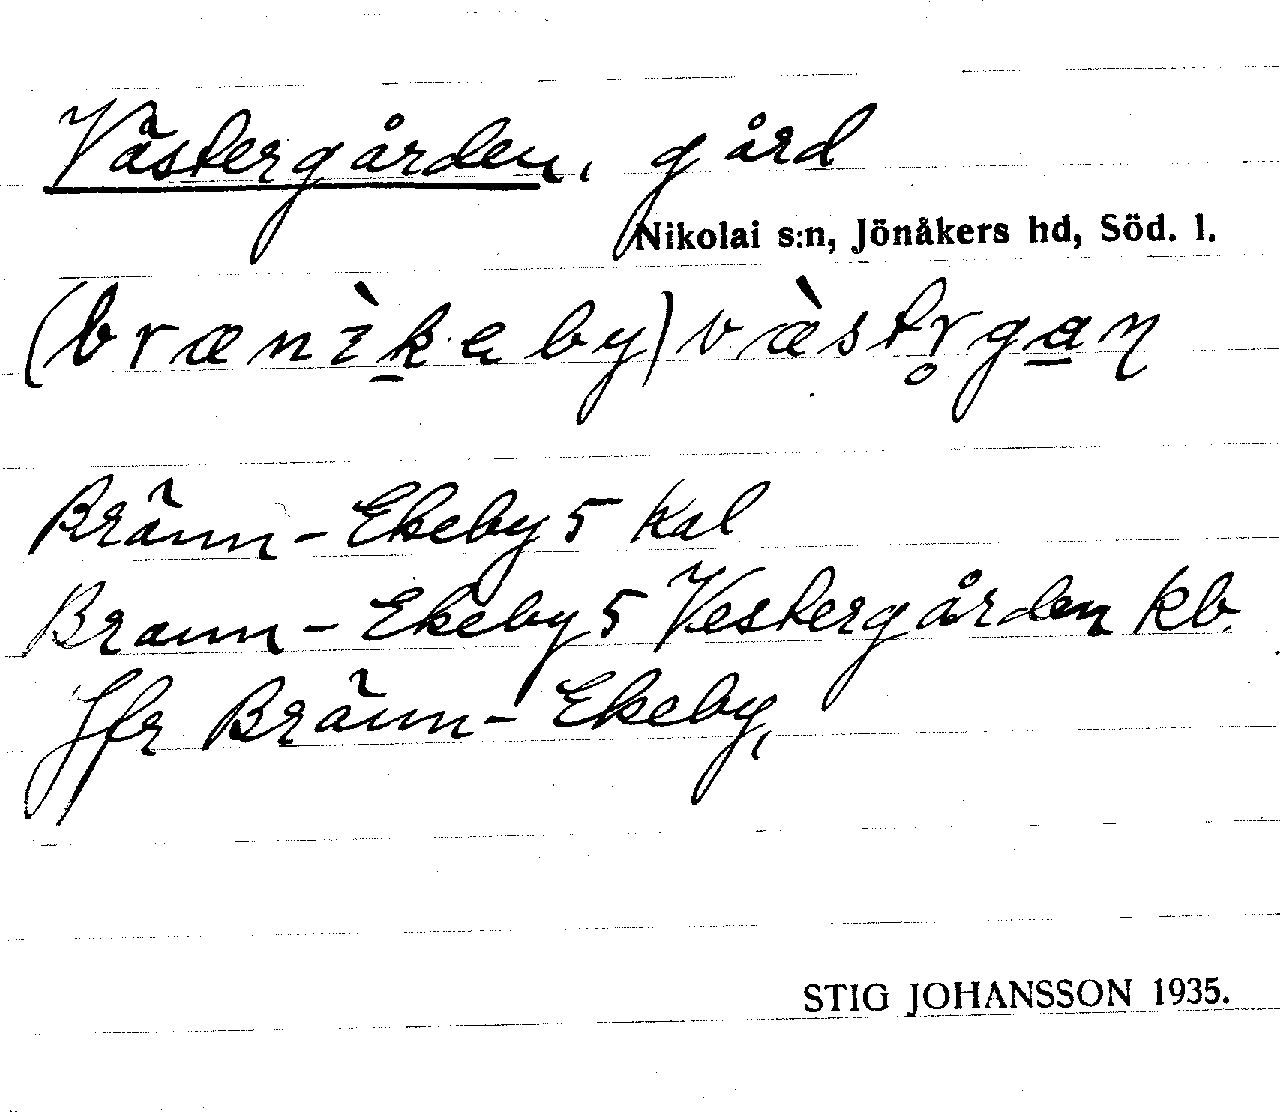 Västergården, gård
Nikolai s:n, Jönåkers hd, Söd. l.
(brænìk̲eby) væ̀str̥ga̲n
Bränn-Ekeby 5 kal
Brann-Ekeby 5 Vestergården kb.
Jfr Bränn-Ekeby,
STIG JOHANSSON 1935.